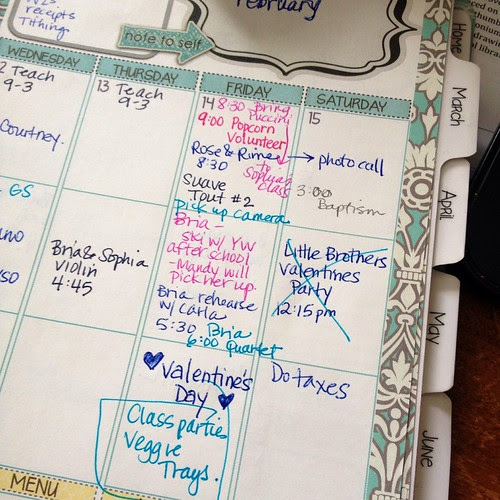 receipts
Tithing
note to self
February
WEDNESDAY
THURSDAY
FRIDAY
SATURDAY
2 Teach
9-3
Courtney.
GS
13 Teach
9-3
Bria & Sophia
violin
4:45
14 8:30 Bring
Puccini
to
Sophia's
class
9:00 Popcorn
Volunteer
Rose & Rime
8:30
→ photo call
Suave
Tout #2
Pick up Camera
Bria -
ski w/ YW
after school
-Mandy will
Pick her up.
Bria rehearse
w/ Carla
5:30 Bria
6:00 Quartet
Valentine's
Day
Class parties
Veggie
Trays.
15
3:00
Baptism
Little Brothers
Valentines
Party
12:15 pm
Do taxes
MENU
Home
March
April
May
June